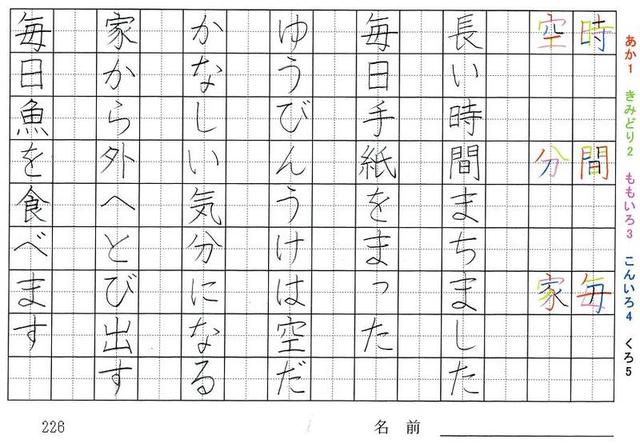 あか1 きみどり2 ももいろ3 こんいろ4 くろ5
時 間 毎
空 分 家
長い時間まちました
毎日手紙をまった
ゆうびんうけは空だ
かなしい気分になる
家から外へとび出す
毎日魚を食べます
226
名前